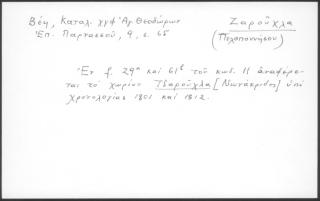 Βέη, Καταλ. χγφ Ἁγ. Θεοδώρων
Ἐπ. Παρνασσοῦ, 9, σ. 65
Ζαρούχλα
(Πελοποννήσου)
Ἐν f. 29α καί 61β τοῦ κωδ. 11 ἀναφέρε-
ται τό χωρίον Τδαρούχλα [Νωνάκριδος] ὑπό
χρονολογίας 1801 καί 1812.